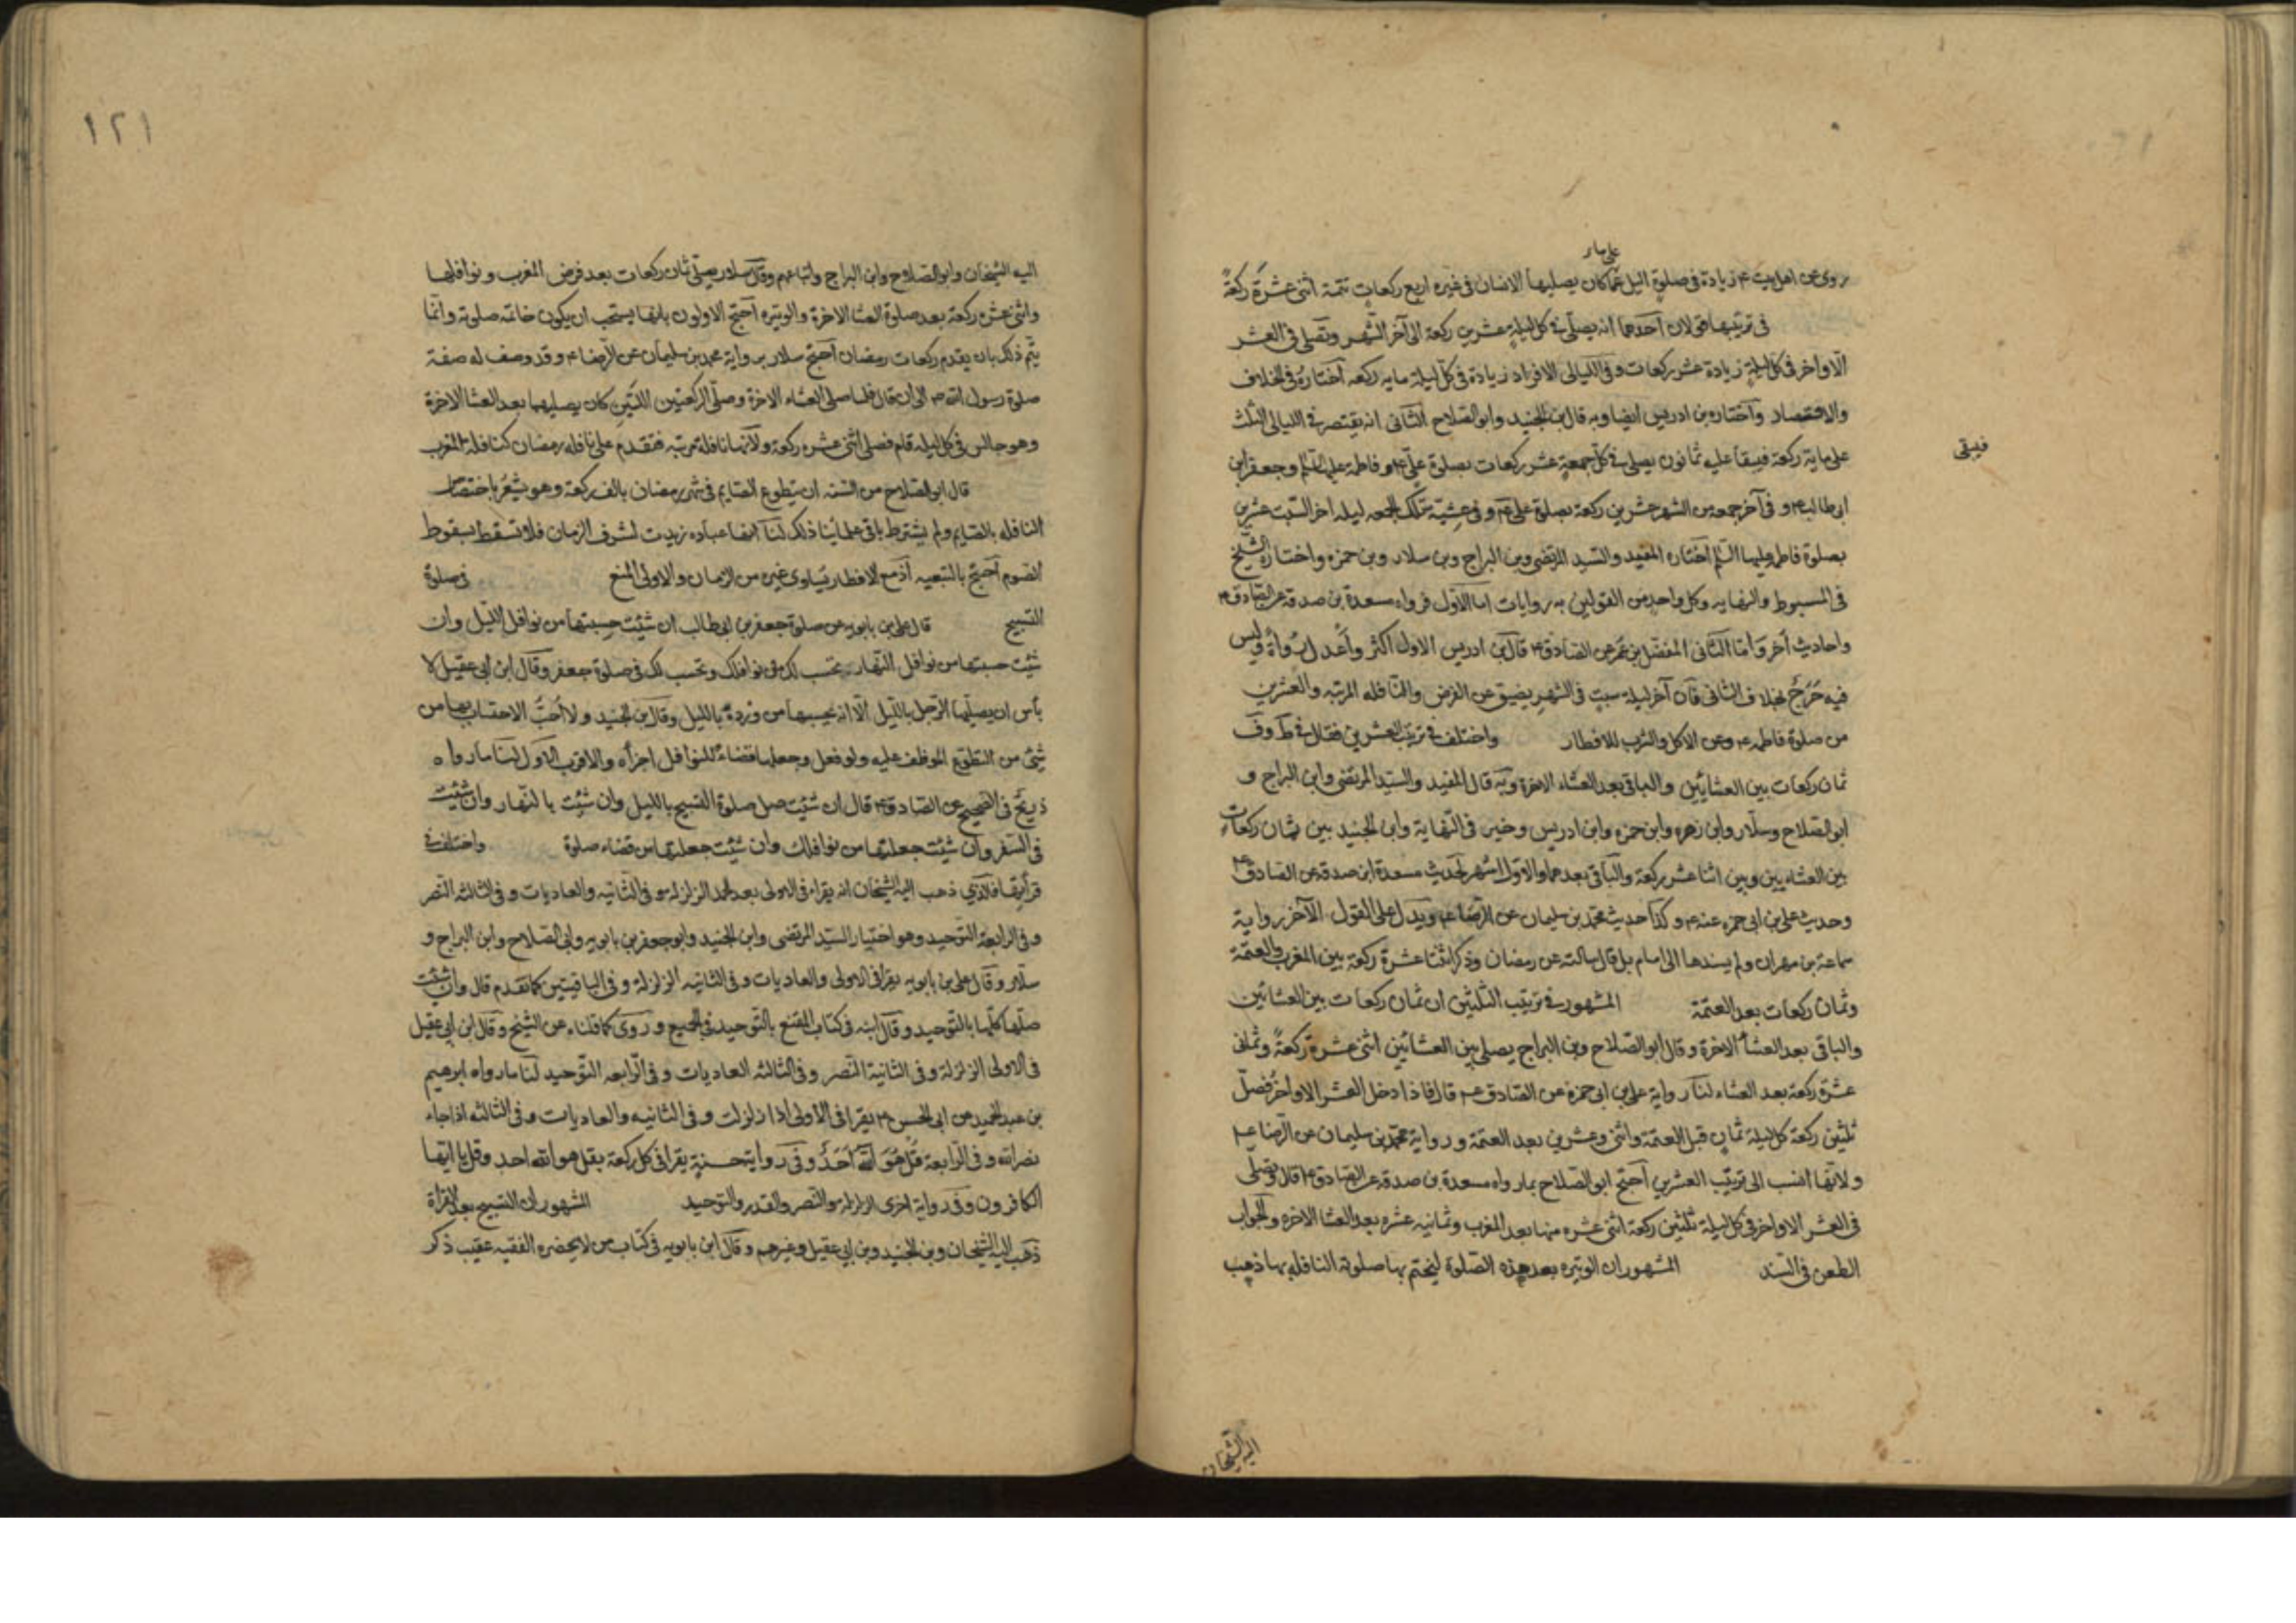 على ما ر
روى عن اهل بيت ع زيادة في صلوة الليل عما كان يصليها الانسان في غيره اربع ركعات تتمة اثنى عشرة ركعةً
في ترتيبها قولان آحدهما انه يصلى في كل ليلة عشرين ركعة الى آخر الشهر وتصلى في العشر
الاواخر في كل ليلةٍ زيادة عشر ركعات وفي الليالى الافراد زيادة في كل ليلة مايه ركعه آختاره في الخلاف
والاقتصاد وآختاره بن ادريس ايضا وبه قال ابن الجنيد وابو الصلاح الثانى انه يقتصر في الليالى الثلث
على ماية ركعة فيبقا عليه ثمانون يصلى في كل جمعةٍ عشر ركعات بصلوة علىّ ع وفاطمة عليها السلم وجعفر ابن
فيبقى
ابى طالب ع و في آخر جمعه من الشهر عشرين ركعة بصلوة على ع و في عشيّة تلك الجمعه ليله آخر السبت عشرين
بصلوة فاطمة عليها السلم آختاره المفيد والسيد المرتضى وبن البراج وبن سلار وبن حمزه واختاره الشيخ
في المبسوط والنهايه وكل واحد من القولين به روايات اما الآول فرواه مسعدة بن صدقة عن الصادق ع
واحاديث أخر وَامّا الثانى المفضل بن عمر عن الصادق ع قال بن ادريس الاول اكثر وأعدل رُواةً وليس
فيه حَرَجٌ بخلاف الثانى فآن آخر ليلة سبتٍ في الشهر يضيق عن الفرض والنافله المرتبه والعشرين
من صلوة فاطمه ع وعن الاكل والشرب للافطار واختلف في ترتيب العشرين فقال في ط وف
ثمان ركعات بين العشايَين والباقى بعد العشاء الاخرة وبَه قال المفيد والسيد المرتضى وابن البراج و
ابو الصلاح وسلّار وابن زهره وابن حمزه وابن ادريس وخير في النهاية وابن الجنيد بين ثمان ركعات
بين العشايين وبين اثنا عشر ركعة والباقى بعدهما والاول اشهر لحديث مسعدة ابن صدقه عن الصادق ع
وحديث على بن ابى حمزه عنه ع و كذآ حديث محمّد بن سليمان عن الرضا ع ويَدل على القول الآخر رواية
سماعة بن مهران ولم يسندها الى امام بل قال سالته عن رمضان وذكر اثنتا عشرة ركعة بين المغرب والعتمة
وثمان ركعات بعد العتمة المشهور في ترتيب الثلثين ان ثمان ركعات بين العشائين
والباقى بعد العشاء الاخرة وقال ابو الصلاح وبن البراج يصلى بين العشائين اثنى عشرة ركعةً وثمانى
عشرة ركعة بعد العشاء لنا رواية على بن ابى حمزة عن الصادق ع قال فاذا دخل العشر الاواخر فصلّ
ثلثين ركعة كل ليلة ثمان قبل العتمة واثنى وعشرين بعد العتمة ورواية محمّد بن سليمان عن الرضا ع
ولانها انسب الى ترتيب العشرين آحتج ابو الصلاح بما رواه مسعدة بن صدقة عن الصادق ع قال وتصلى
في العشر الاواخر في كل ليلة ثلثين ركعة اثنى عشره منها بعد المغرب وثمانيه عشره بعد العشا الاخره والجواب
الطعن في السند المشهور ان الوتيره بعد هذه الصلوة ليختم بها صلوته النافله بها ذهب
اليه الشيخان
١٢١
اليه الشيخان وابو الصلاح وابن البراج واتباعهم وقال سلار يصلّى ثمان ركعات بعد فرض المغرب ونوافلها
واثنى عشره ركعة بعد صلوة العشا الاخرة والوتيره آحتج الاولون بانها يستحب ان يكون خاتمه صلوته وانّما
يتم ذلك بان يقدم ركعات رمضان آحتج سلار برواية محمد بن سليمان عن الرّضا ع و قد وصف له صفة
صلوة رسول الله ص الى ان قال فلما صلى العشاء الاخرة وصلّى الركعتين اللتين كان يصليهما بعد العشا الاخرة
وهو جالس في كل ليله قام فصلى اثنى عشره ركعة ولآنها نافلة مرتبه فتقدم على نافله رمضان كنافله المغرب
قال ابو الصلاح من السنه ان يتطوع الصايم في شهر رمضان بالف ركعة وهو يشعُر باختصاص
النافله بالصايم ولم يشترط باقى علمائنا ذلك لنآ انها عباده زيدت لشرف الزمان فلا تسقط بسقوط
الصوم آحتج بالتبعيه آذ مع الافطار يُساوى غيره من الزمان والاولى المنع في صلوة
التسبيح قال على بن بابويه عن صلوة جعفر بن ابى طالب ان شئت حسبتها من نوافل الليل وان
شئت حسبتها من نوافل النهار يحتسب لك من نوافلك وتحسب لك في صلوة جعفر وقال ابن ابى عقيل لا
بأس ان يصليها الرّجل بالليل الّا انه يحسبها من ورده بالليل وقال بن الجنيد ولا اُحبُّ الاحتساب بها من
شئ من التطوّع الموظف عليه ولو فعل وجعلها قضاءً للنوافل اجزأه والاقرب الاول لنا ما رواه
ذريح في الصحيح عن الصادق ع قال ان شئت صل صلوة التسبيح بالليل وان شئت بالنهار وان شئت
في السفر وان شئت جعلتها من نوافلك وان شئت جعلتها من قضاء صلوة واختلف في
قرأتها فالذي ذهب اليه الشيخان انه يقراء في الاولى بعد الحمد الزلزله و في الثانيه والعاديات و في الثالثه النصر
و في الرابعة التوحيد وهو اختيار السيّد المرتضى وابن الجنيد وابو جعفر بن بابويه وابى الصلاح وابن البراج و
سلّار وقال على بن بابويه يقرا في الاولى والعاديات وفي الثانيه الزلزلة وفي الباقيتين كما تقدم قال وان شئت
صلّها كلّها بالتّوحيد وقال ابنه في كتاب المقنع بالتّوحيد في الجميع وروى كما قلناه عن الشيخ وقال ابن ابى عقيل
في الاولى الزلزلة وفي الثانية النصر وفي الثالثه العاديات وفي الرّابعه التوحيد لنا ما رواه ابرهيم
بن عبد الحميد عن ابى الحسن ع يقرا في الاولى اذا زلزلت و في الثانيه والعاديات و في الثالثه اذا جاء
نصر الله و في الرّابعة قُل هُوَ اللّهُ اَحَدٌ وفي رواية حسنة يقرا في كل ركعة بقل هو الله احد وقل يا ايها
الكافرون وفي رواية اخرى الزلزله والنصر والقدر والتوحيد الشهور ان التسبيح بعد القراة
ذهب اليه الشيخان وبن الجنيد وبن ابى عقيل وغيرهم وقال ابن بابويه في كتاب من لا يحضره الفقيه عقيب ذكر